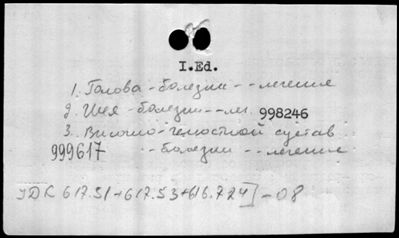 I.Ed.
1. Голова - болезни -- лечение
2. Шея - болезни -- леч. 998246
3. Височно-челюстной сустав
999617 -- болезни -- лечение
УДК 617.51+617.53+616.724]-08